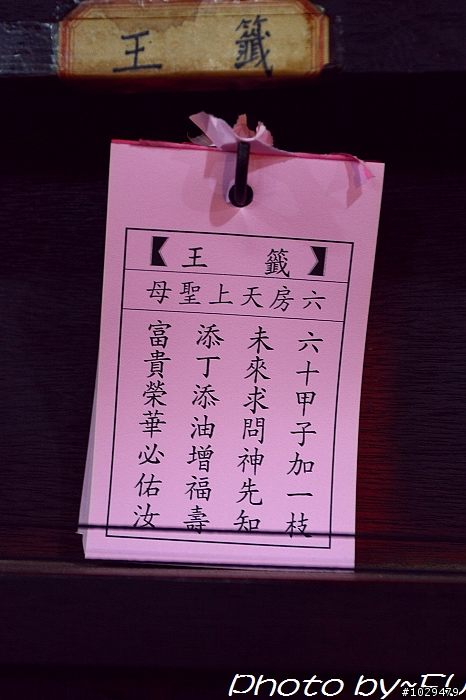 籤王
【籤王】
六房天上聖母
六十甲子加一枝
未來求問神先知
添丁添油增福壽
富貴榮華必佑汝
Photo by~FU
#1029479